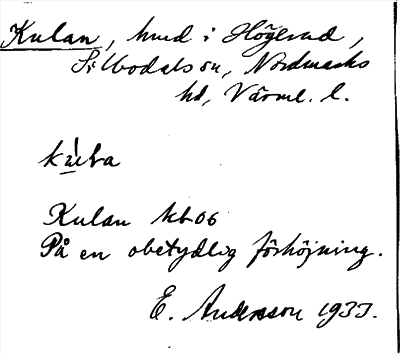 Kulan, hmd i Högerud,
Sillbodals sn, Nordmarks
hd, Värml. l.
Kulan kb 06
På en obetydlig förhöjning.
E. Andersson 1933.